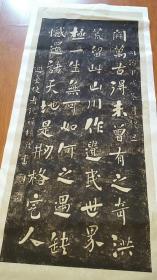 開萬古得未曾有之奇洪
荒留此山川作遺民世界
極一生無可如何之遇缺
憾還諸天地是刱格完人